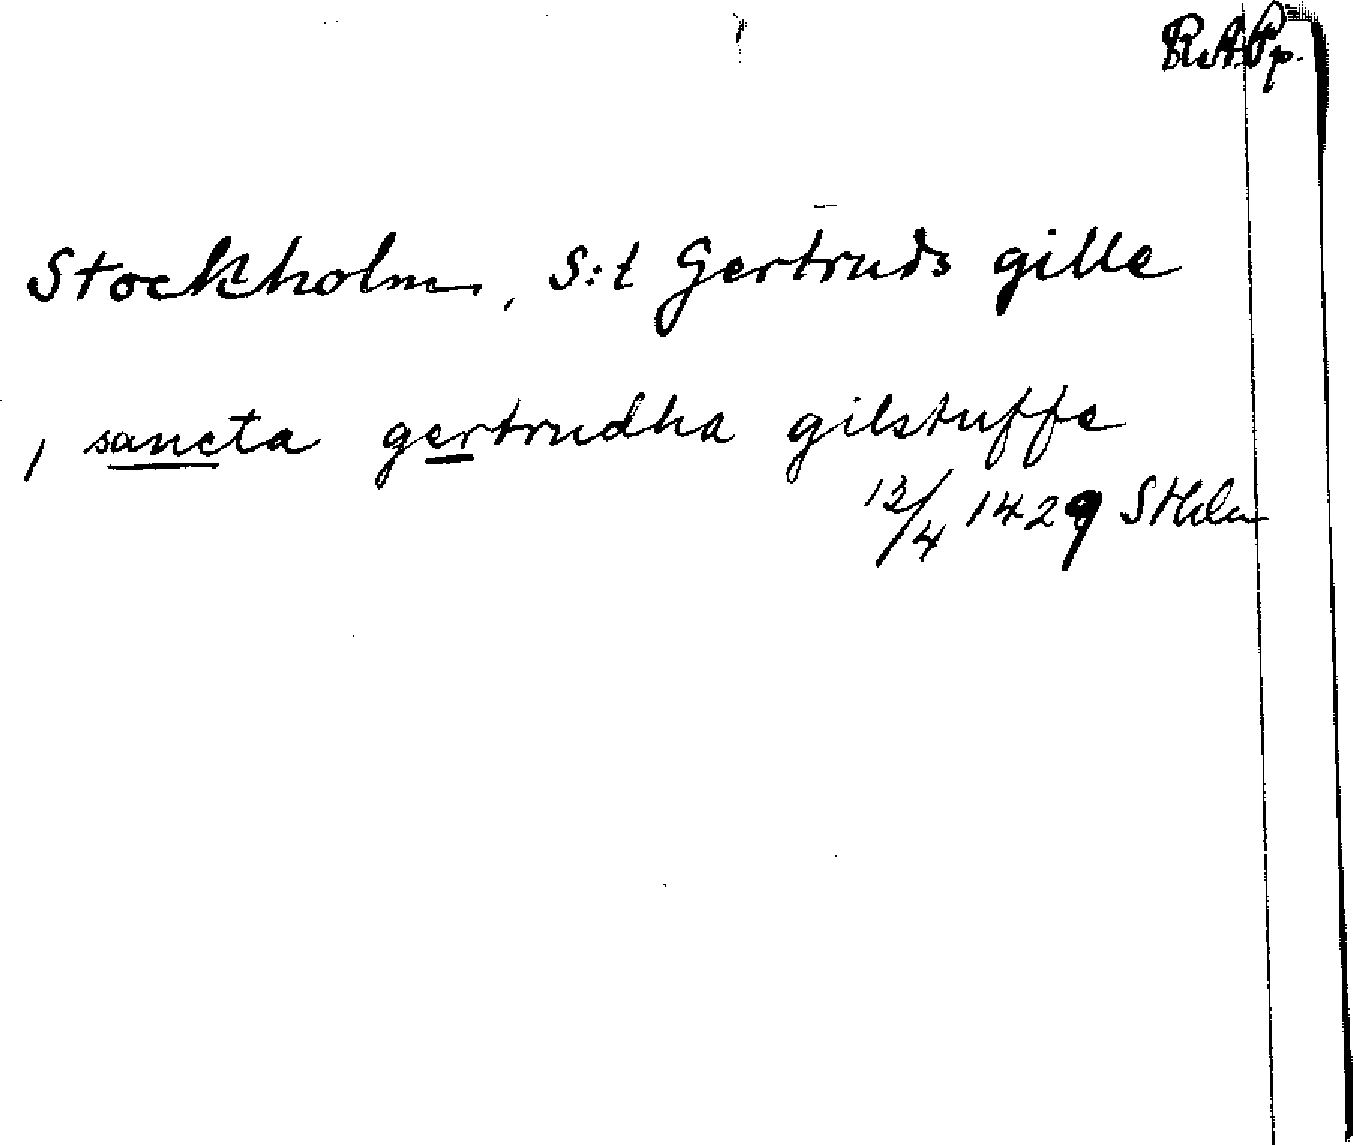 R.A.Pp.
Stockholm, S:t Gertruds gille
, sancta gertrudha gilstuffe
13/4 1429 Sthlm